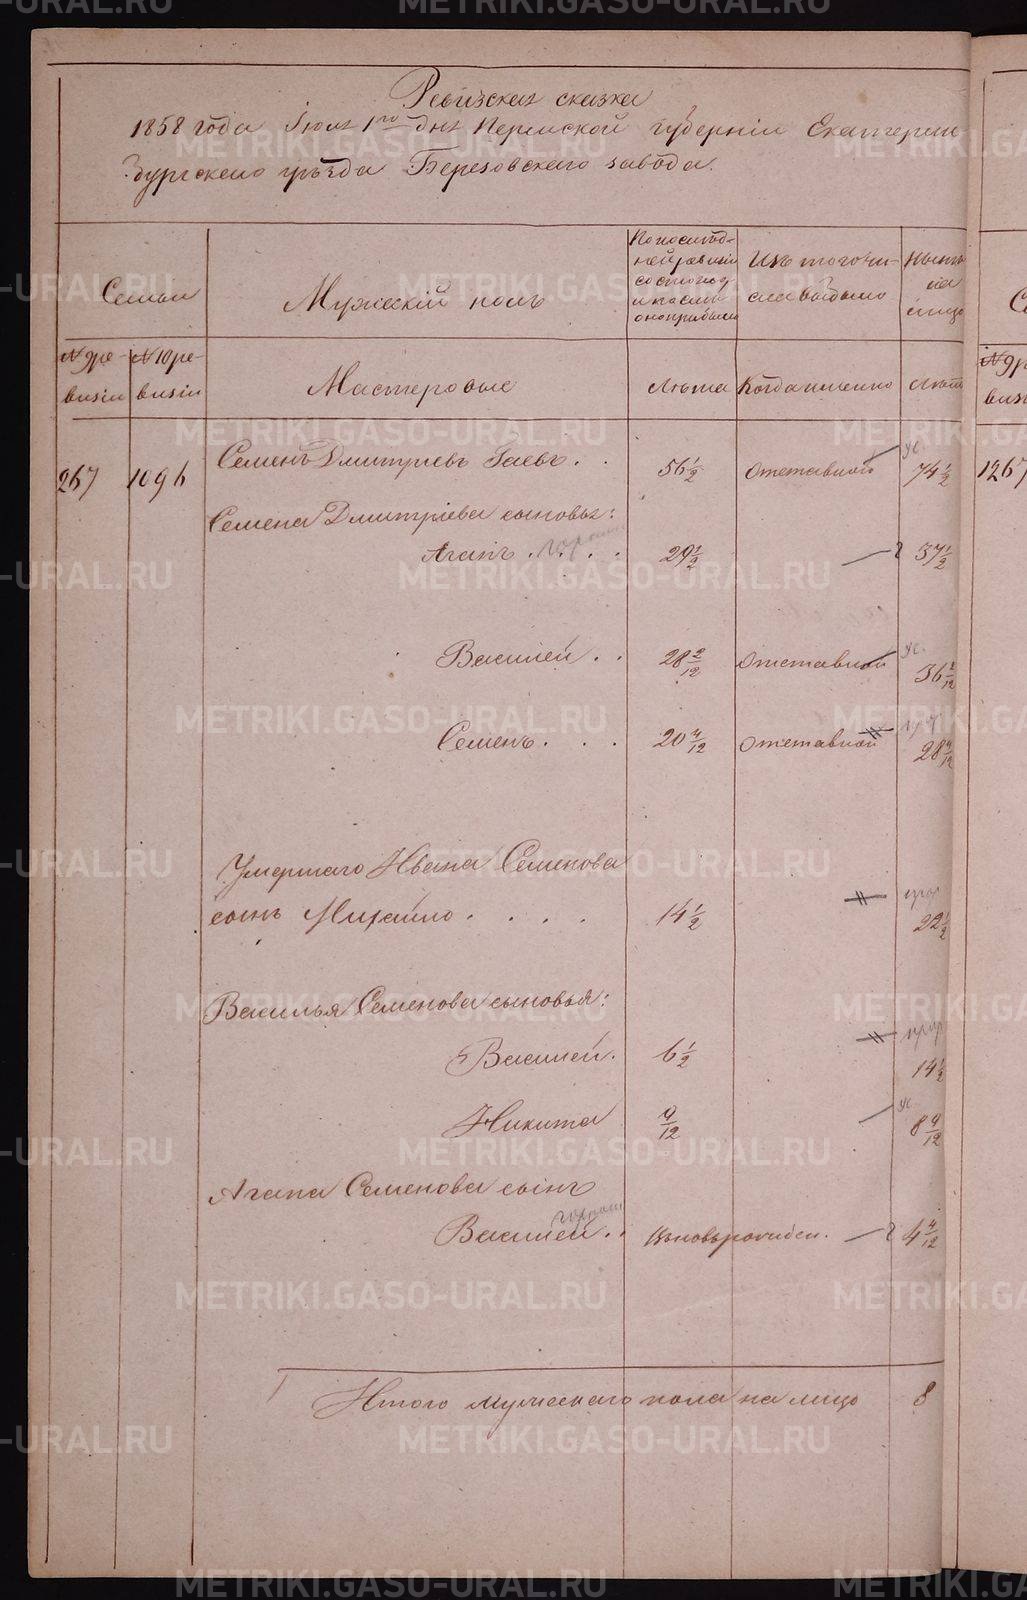 Ревизская сказка
1858 года Июля 1го дня Пермской губерніи Екатерин
бургскаго уѣзда Березовскаго завода.
Семьи
Мужескій полъ
По послѣд-
ней ревизіи
состояло
и послѣ
оной прибыло
Изъ того чи-
сла выбыло
Нынѣ
на
лицо
№ 9 ре-
визіи
№ 10 ре-
визіи
Мастеровые
Лѣта
Когда именно
Лѣта
№ 9 р
виз
267
1096
Семенъ Дмитріевъ Гаевъ . .
56 1/2
Отставной
ус.
74 1/2
1267
Семена Дмитріева сыновья:
Агапъ . . . .
29 1/2
37 1/2
Василей . .
28 2/12
Отставной
ус.
36 2/12
Семенъ . . .
20 4/12
Отставной
28 4/12
Умершаго Ивана Семенова
сынъ Михайло . . . .
14 1/2
22 1/2
Василья Семенова сыновья:
Василей .
6 1/2
14 1/2
Никита
4/12
ус.
8 4/12
Агапа Семенова сынъ
Василей . .
Вновьрожден.
4 4/12
Итого мужескаго пола на лицо
8
METRIKI.GASO-URAL.RU